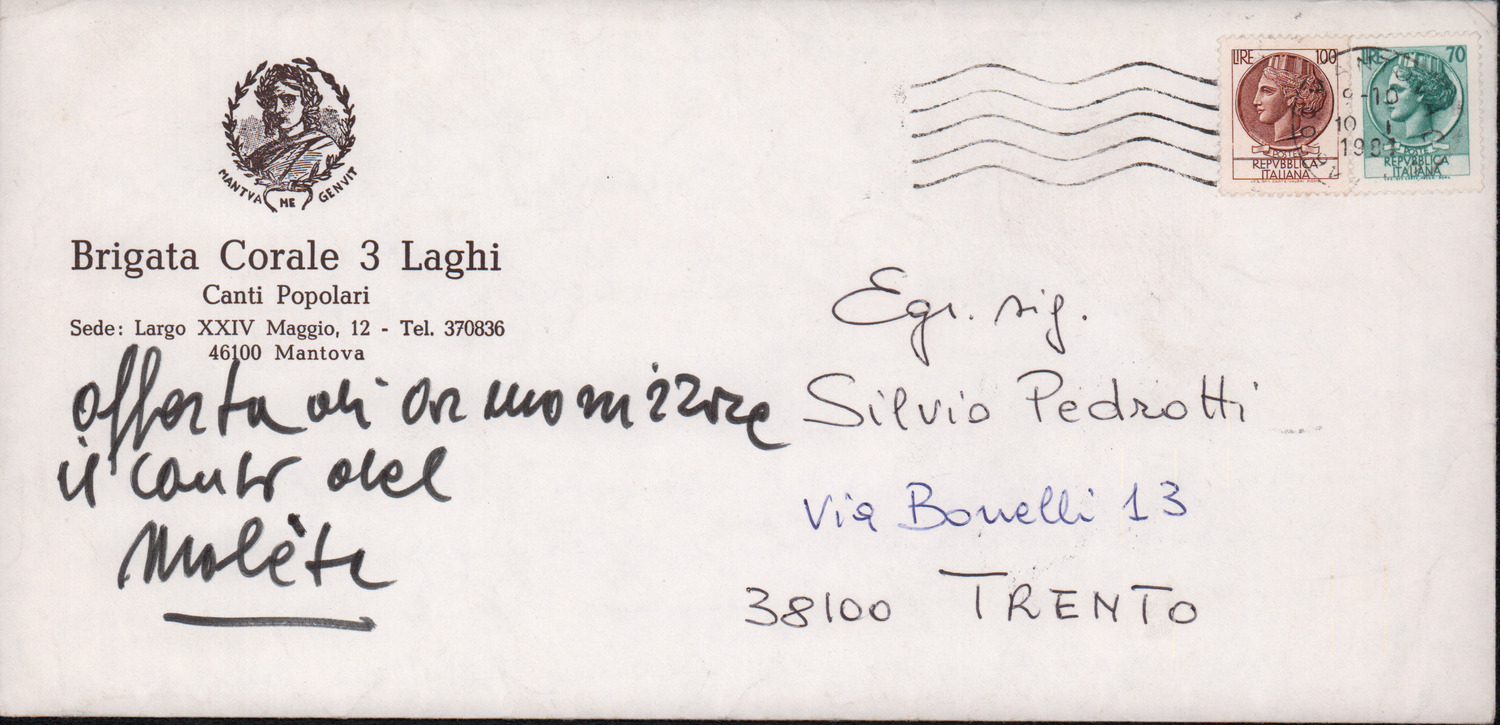 MANTVA ME GENVIT
Brigata Corale 3 Laghi
Canti Popolari
Sede: Largo XXIV Maggio, 12 - Tel. 370836
46100 Mantova
offerta di armonizzare
il canto del
Molèta
LIRE 100
POSTE
REPVBBLICA
ITALIANA
LIRE 70
POSTE
REPVBBLICA
ITALIANA
9-10
10 1
1981
Egr. sig.
Silvio Pedrotti
Via Bonelli 13
38100 TRENTO